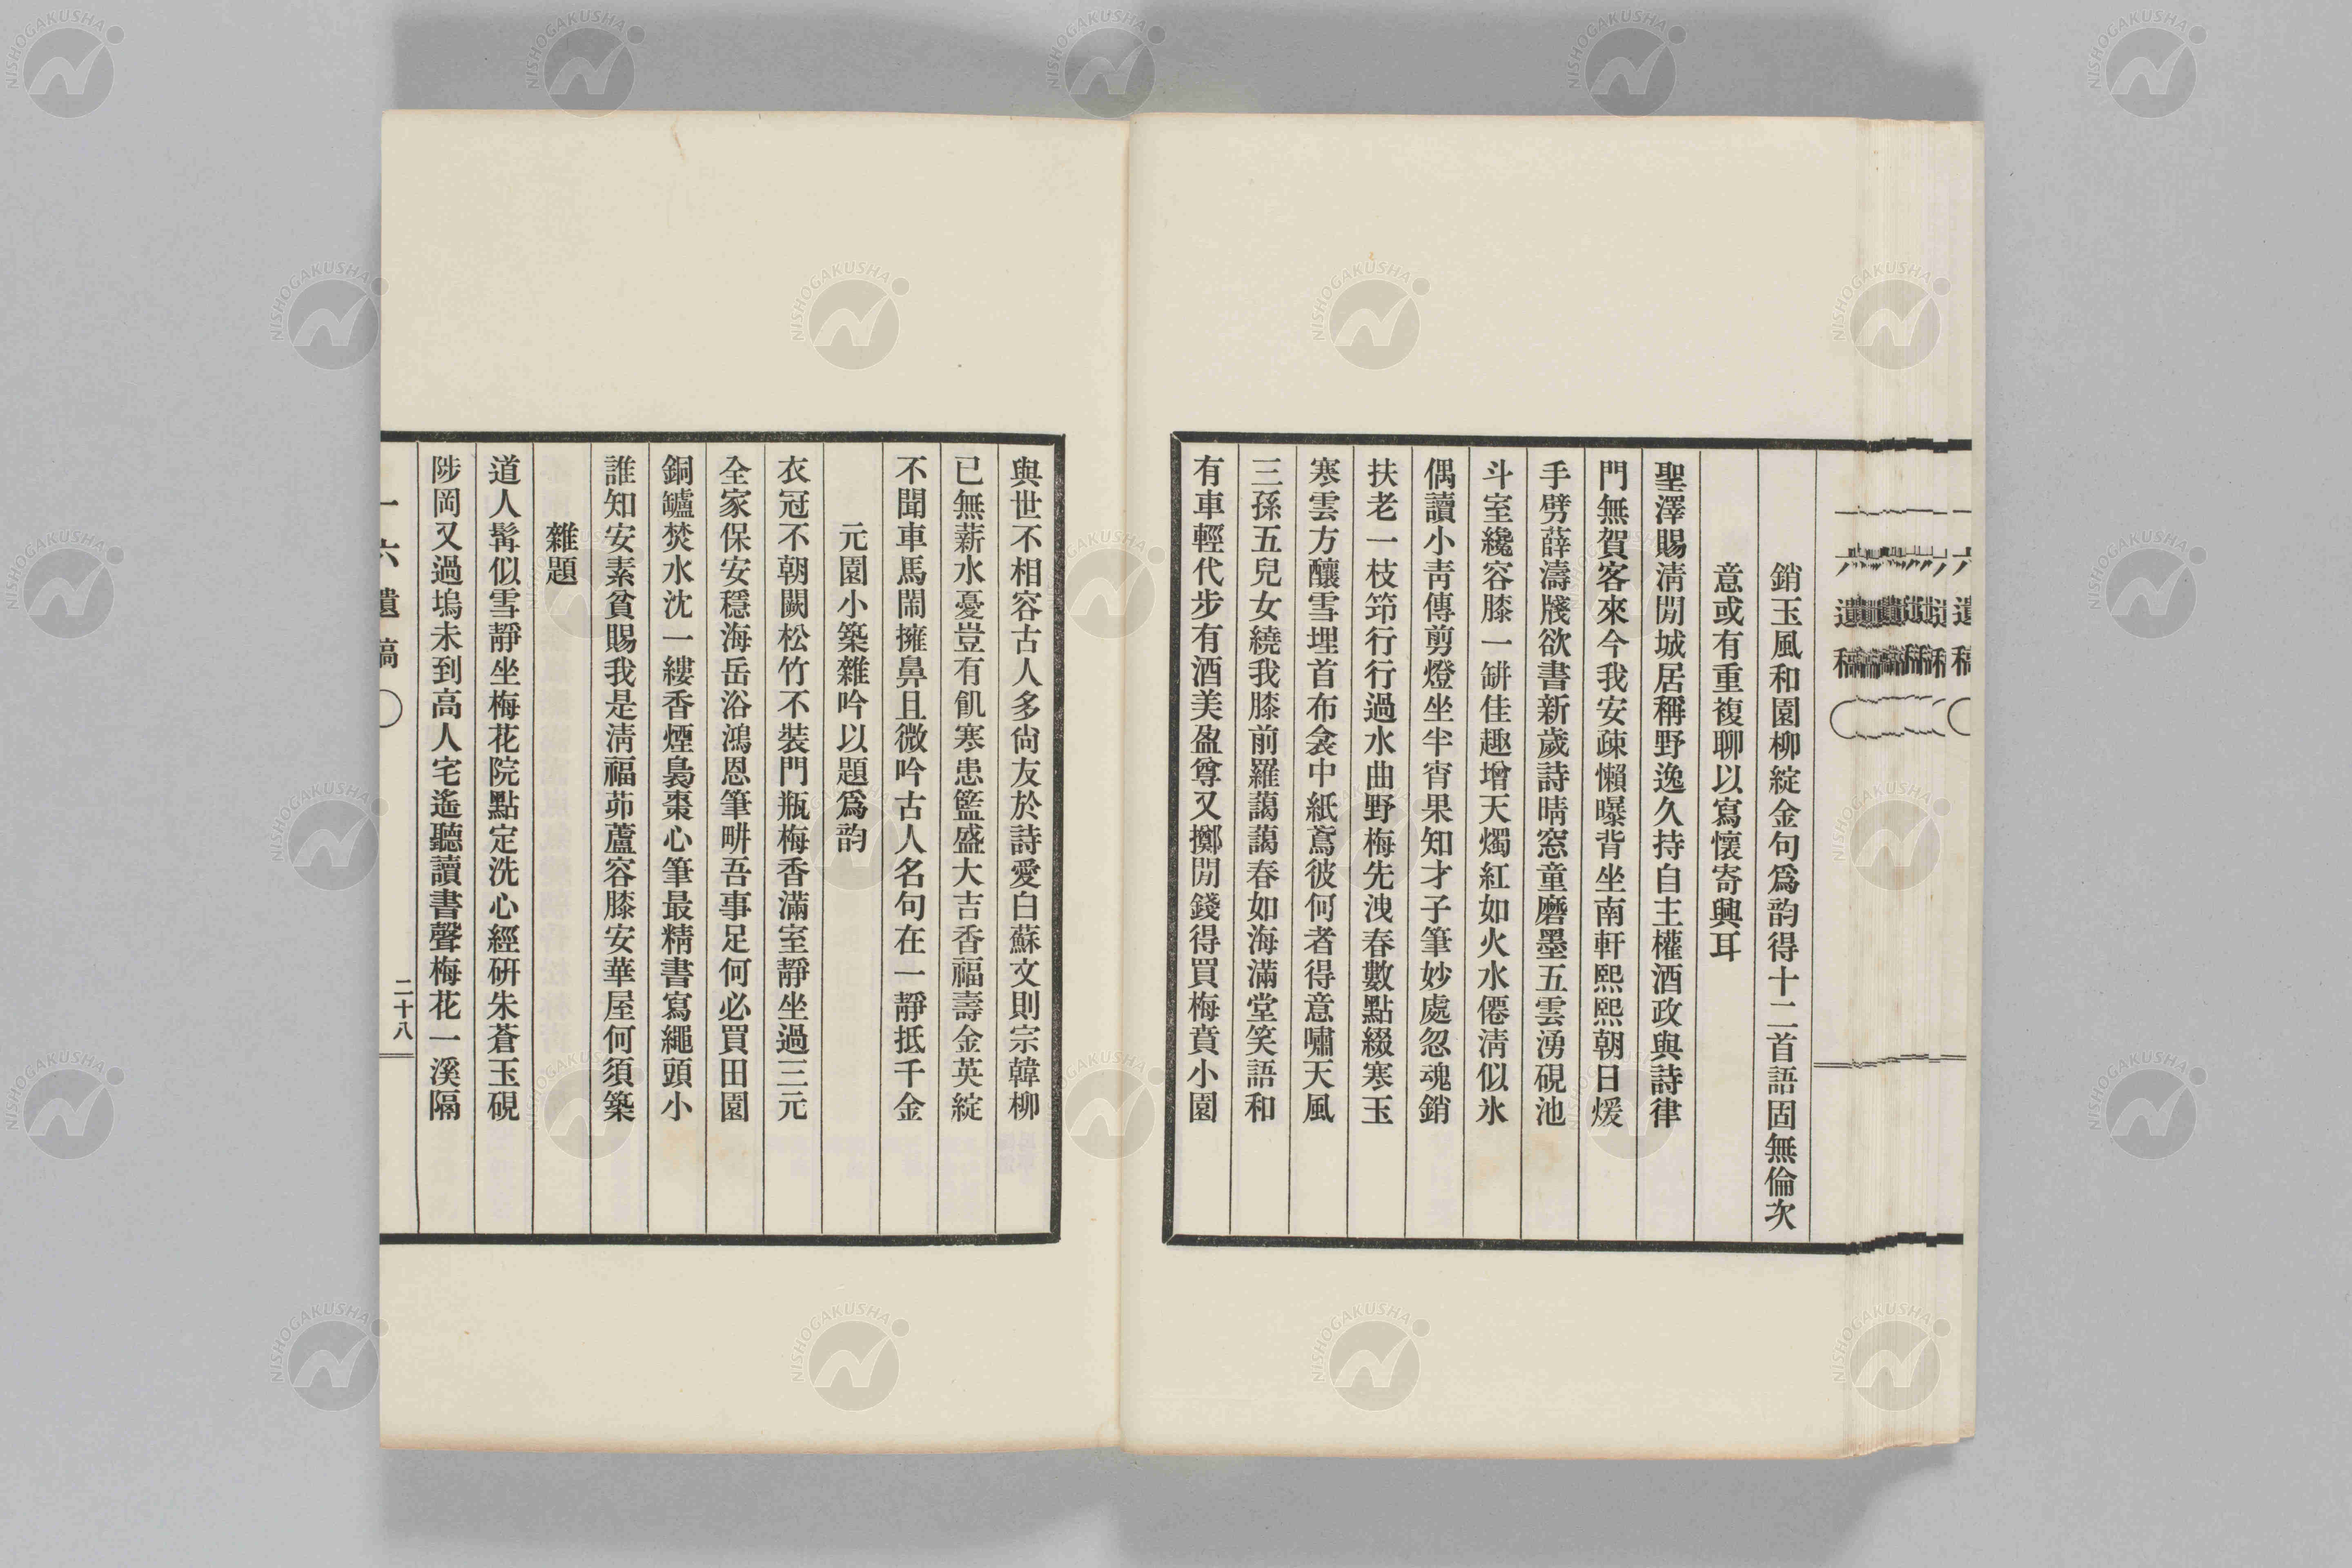 銷玉風和園柳綻金句爲韵得十二首語固無倫次
意或有重複聊以寫懷寄興耳
聖澤賜淸閒城居稱野逸久持自主權酒政與詩律
門無賀客來今我安疎懶曝背坐南軒熙熙朝日煖
手劈薛濤牋欲書新歲詩晴窓童磨墨五雲湧硯池
斗室纔容膝一缾佳趣增天燭紅如火水僊淸似氷
偶讀小靑傳剪燈坐半宵果知才子筆妙處忽魂銷
扶老一枝筇行行過水曲野梅先洩春數點綴寒玉
寒雲方釀雪埋首布衾中紙鳶彼何者得意嘯天風
三孫五兒女繞我膝前羅藹藹春如海滿堂笑語和
有車輕代步有酒美盈尊又擲閒錢得買梅賁小園
與世不相容古人多尙友於詩愛白蘇文則宗韓柳
已無薪水憂豈有飢寒患籃盛大吉香福壽金英綻
不聞車馬鬧擁鼻且微吟古人名句在一靜抵千金
元園小築雜吟以題爲韵
衣冠不朝闕松竹不裝門瓶梅香滿室靜坐過三元
全家保安穩海岳浴鴻恩筆畊吾事足何必買田園
銅鑪焚水沈一縷香煙裊棗心筆最精書寫繩頭小
誰知安素貧賜我是淸福茆蘆容膝安華屋何須築
雜題
道人髯似雪靜坐梅花院點定洗心經硏朱蒼玉硯
陟岡又過塢未到高人宅遙聽讀書聲梅花一溪隔
一六遺稿
二十八
NISHOGAKUSHA